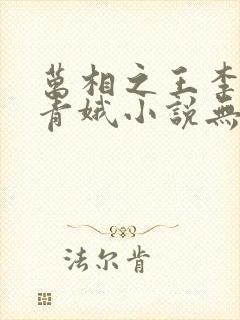 萬相之王李
青娥小說無
法尔肯